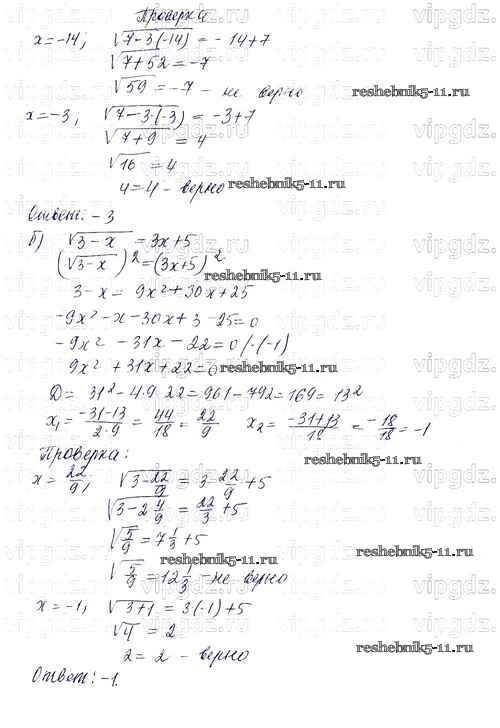 Проверка
x=-14; √7-3(-14) = -14+7
√7+52 = -7
√59 = -7 - не верно
reshebnik5-11.ru
x=-3, √7-3·(-3) = -3+7
√7+9 = 4
√16 = 4
4=4 - верно
reshebnik5-11.ru
Ответ: -3
б) √3-x = 3x+5
(√3-x)² = (3x+5)²
reshebnik5-11.ru
3-x = 9x²+30x+25
-9x²-x-30x+3-25=0
-9x²-31x-22=0 /·(-1)
9x²+31x+22=0
reshebnik5-11.ru
D = 31²-4·9·22=961-792=169=13²
x₁ = -31-13/2·9 = 44/18 = 22/9 x₂ = -31+13/18 = -18/18 = -1
Проверка:
reshebnik5-11.ru
x = 22/9, √3-22/9 = 3·22/9+5
√3-2 4/9 = 22/3+5
√5/9 = 7 1/3+5
reshebnik5-11.ru
√5/9 = 12 1/3 - не верно
x=-1, √3+1 = 3(-1)+5
√4 = 2
2=2 - верно
reshebnik5-11.ru
Ответ: -1.
vipgdz.